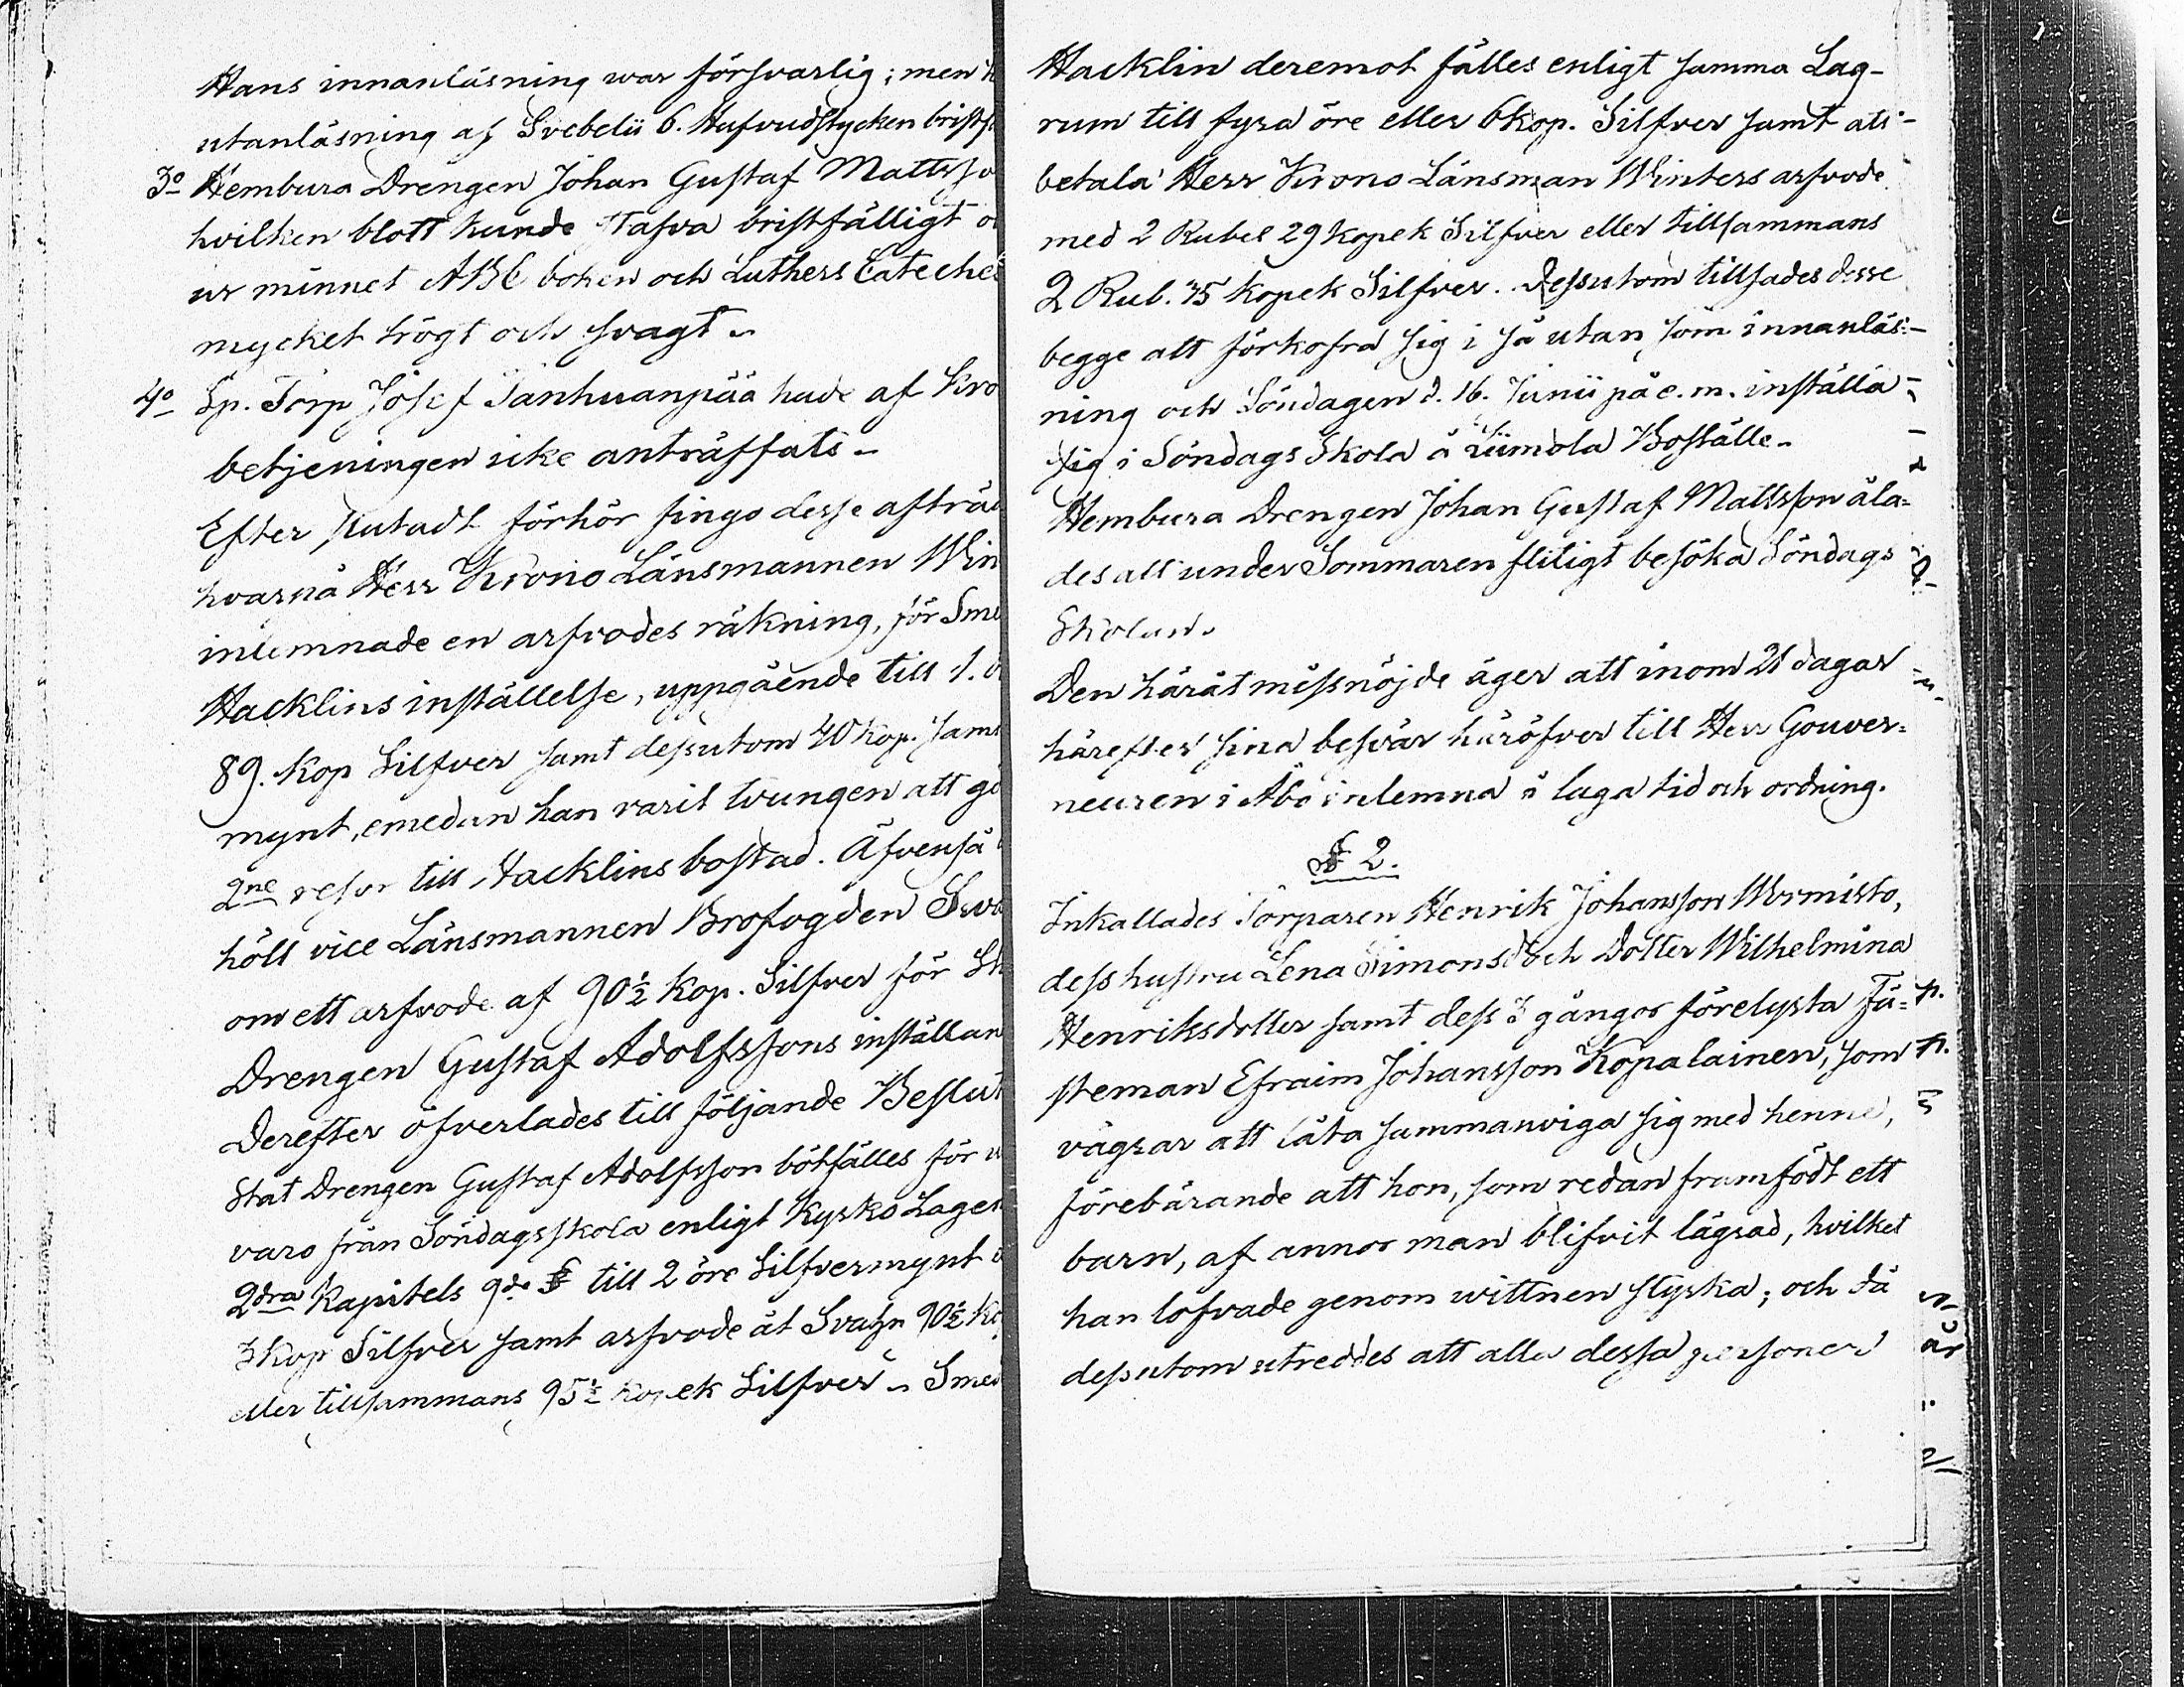 Hans innanläsning war försvarlig; men
utanläsning af Svebelii 6. Hufvudstycken bristf
3o Hembura Drengen Johan Gustaf Mattsso
hvilken blott kunde stafva bristfälligt o
ur minnet ABC boken och Luthers Cateches
mycket trögt och svagt.
4o Sp. Torp Josef Tanhuanpää hade af Kro
betjeningen icke anträffats.
Efter slutadt förhör fingo desse afträd
hvarpå Herr Krono Länsmannen Win
inlemnade en arfvodes räkning, för Sme
Hacklins inställelse, uppgående till 1.
89. kop Silfver samt dessutom 40 kop. sam
mynt, emedan han varit tvungen att gö
2ne resor till Hacklins bostad. Äfvenså
höll vice Länsmannen Brofogden Sva
om ett arfvode af 90½ kop. Silfver för St
Drengen Gustaf Adolfssons inställan
Derefter öfverlades till följande Beslut
Stat Drengen Gustaf Adolfsson bötfälles för u
varo från Söndagsskola enligt Kyrko Lagen
2dra Kapitels 9de § till 2 öre Silfvermynt
3 kop Silfver samt arfvode åt Svahn 90½ ko
eller tillsammans 95½ kopek Silfver. Smed
Hacklin deremot fälles enligt samma Lag-
rum till fyra öre eller 6 kop. Silfver samt att
betala Herr Krono Länsman Winters arfvode
med 2 Rubel 29 kopek Silfver eller tillsammans
2 Rub. 35 kopek Silfver. Dessutom tillsades desse
begge att förkofra sig i så utan som innanläs-
ning och Söndagen d. 16. Junii på e. m. inställa
sig i Söndags Skola å Liimola Boställe.
Hembura Drengen Johan Gustaf Mattsson åla=
des att under Sommaren flitigt besöka Söndags
Skolan.
Den häråt missnöjde äger att inom 21 dagar
härefter sina besvär häröfver till Herr Gouver=
neuren i Åbo inlemna i laga tid och ordning.
§ 2.
Inkallades Torparen Henrik Johansson Wormisto,
dess hustru Lena Simonsd och Dotter Wilhelmina
Henriksdotter samt dess 3 gångor förelysta Fä=
steman Efraim Johansson Kopalainen, som
vägrar att låta sammanviga sig med henne,
förebärande att hon, som redan framfödt ett
barn, af annor man blifvit lägrad, hvilket
han lofvade genom wittnen styrka; och då
dessutom utreddes att alla dessa personer